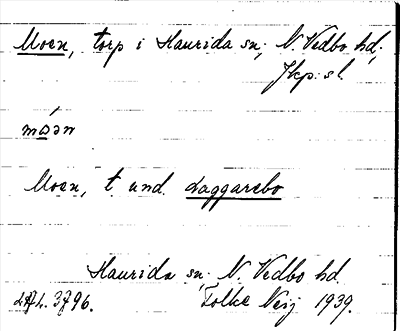 Moen, torp i Haurida sn; N. Vedbo hd,
Jkp: s l.
móən
Moen, t. und. Laggarebo
Haurida sn; N. Vedbo hd.
3796. Folke Neij 1939.